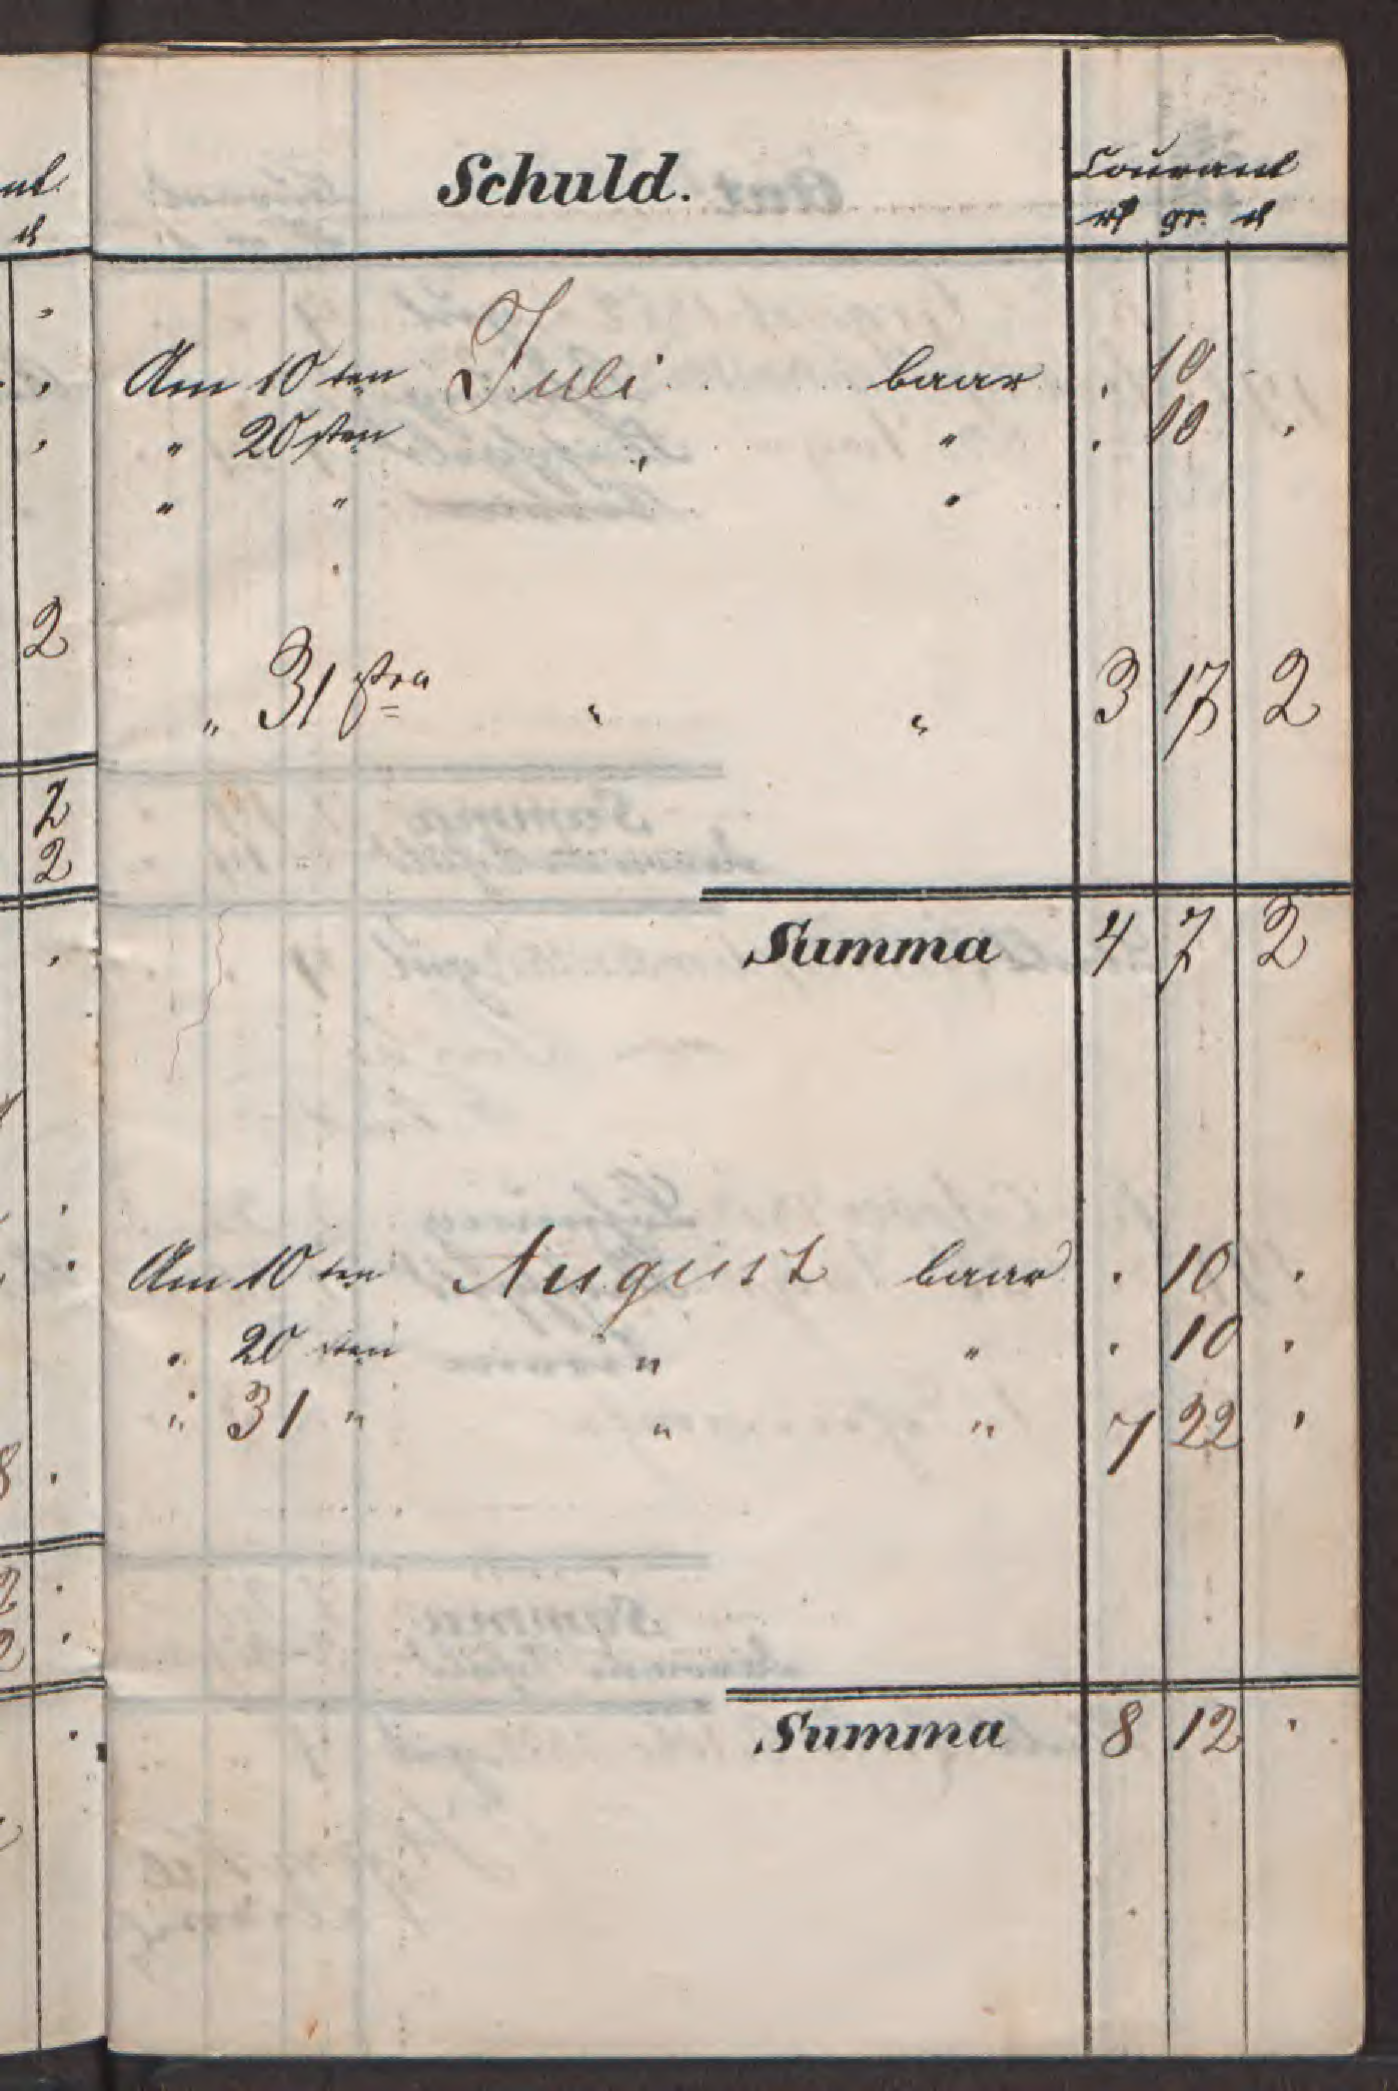 Schuld.
Courant
rh gr. d
Am 10ten Juli baar . 10
" 20sten " " . 10 .
" " "
" 31sten " " 3 17 2
Summa 4 7 2
Am 10ten August baar . 10 .
" 20sten " " . 10 .
" 31 " " " 7 22 .
Summa 8 12 .
2
2
2